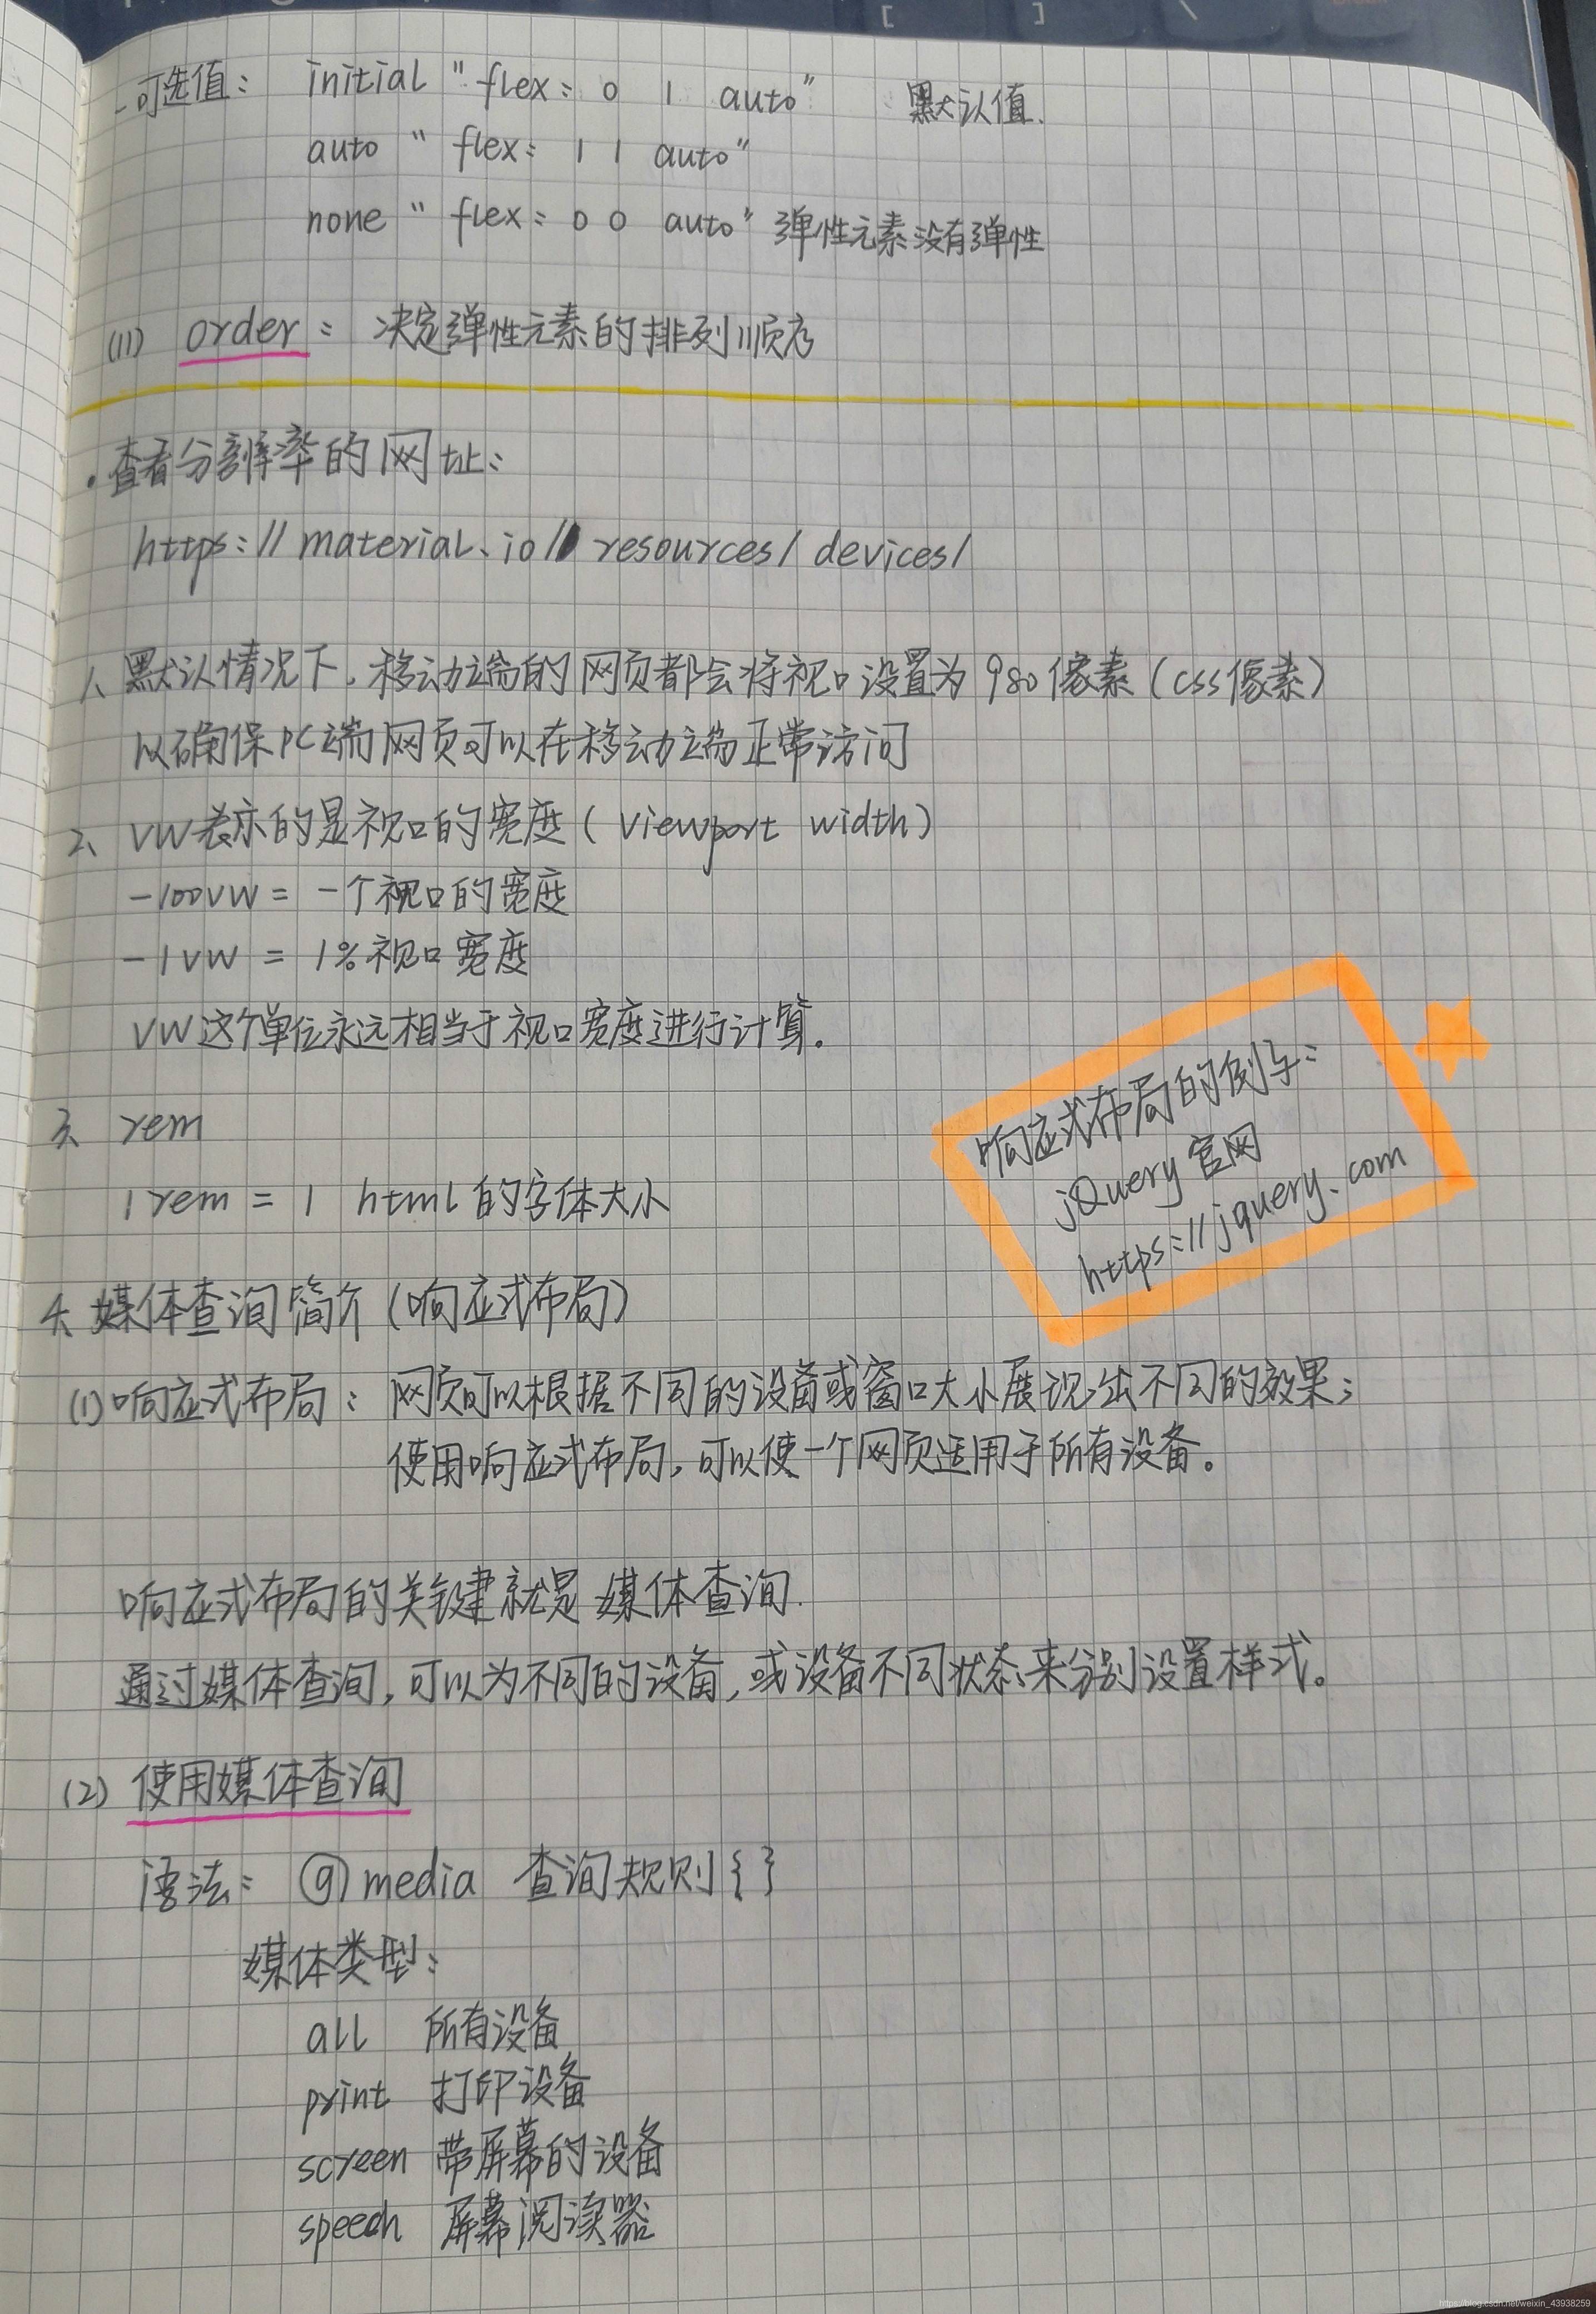 [
]
\
-可选值: initial "flex: 0 1 auto" 默认值.
auto "flex: 1 1 auto"
none "flex: 0 0 auto" 弹性元素没有弹性
(11) order: 决定弹性元素的排列顺序
·查看分辨率的网址:
https://material.io/resources/devices/
1、默认情况下,移动端的网页都会将视口设置为980像素(css像素)
以确保PC端网页可以在移动端正常访问
2、VW表示的是视口的宽度(viewport width)
-100VW = 一个视口的宽度
-1VW = 1%视口宽度
VW这个单位永远相当于视口宽度进行计算.
3、rem
1rem = 1 html的字体大小
响应式布局的例子:
jQuery官网
https://jquery.com
4、媒体查询简介(响应式布局)
(1)响应式布局: 网页可以根据不同的设备或窗口大小展现出不同的效果;
使用响应式布局,可以使一个网页适用于所有设备。
响应式布局的关键就是 媒体查询.
通过媒体查询,可以为不同的设备,或设备不同状态来分别设置样式。
(2) 使用媒体查询
语法: @media 查询规则{ }
媒体类型:
all 所有设备
print 打印设备
screen 带屏幕的设备
speech 屏幕阅读器
https://blog.csdn.net/weixin_43938259